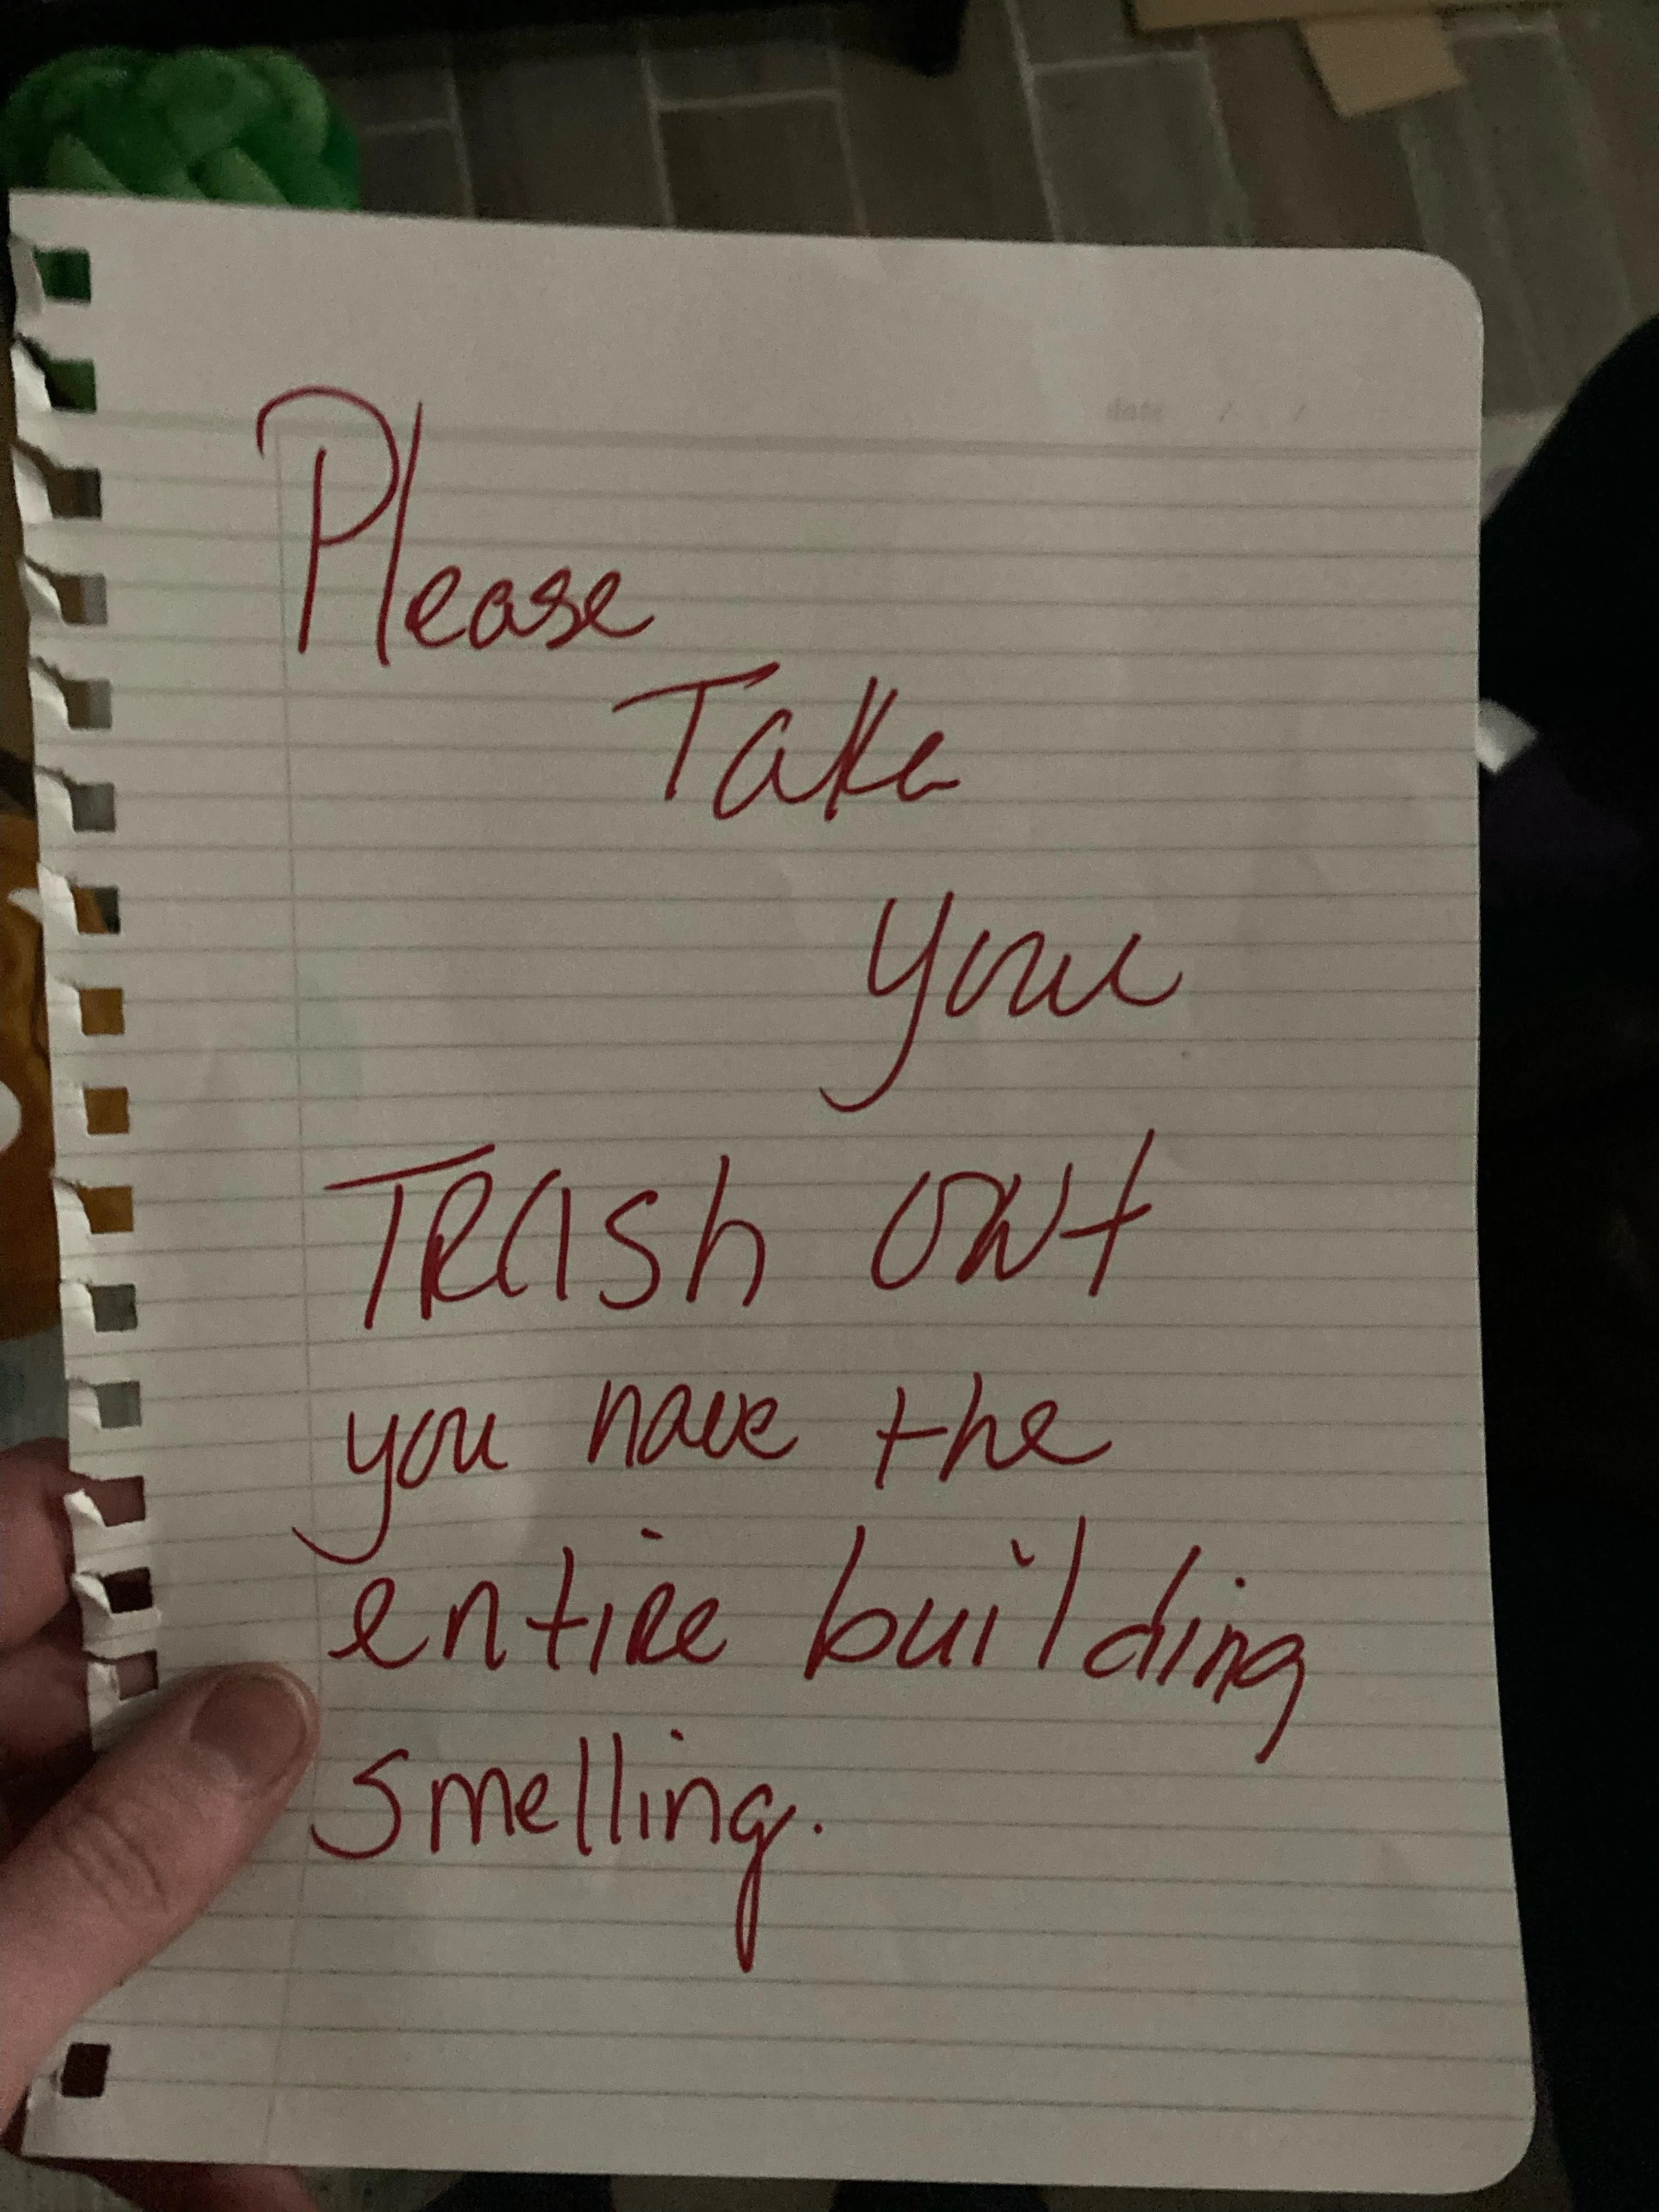 Please
Take
your
TRASH OUT
you have the
entire building
smelling.